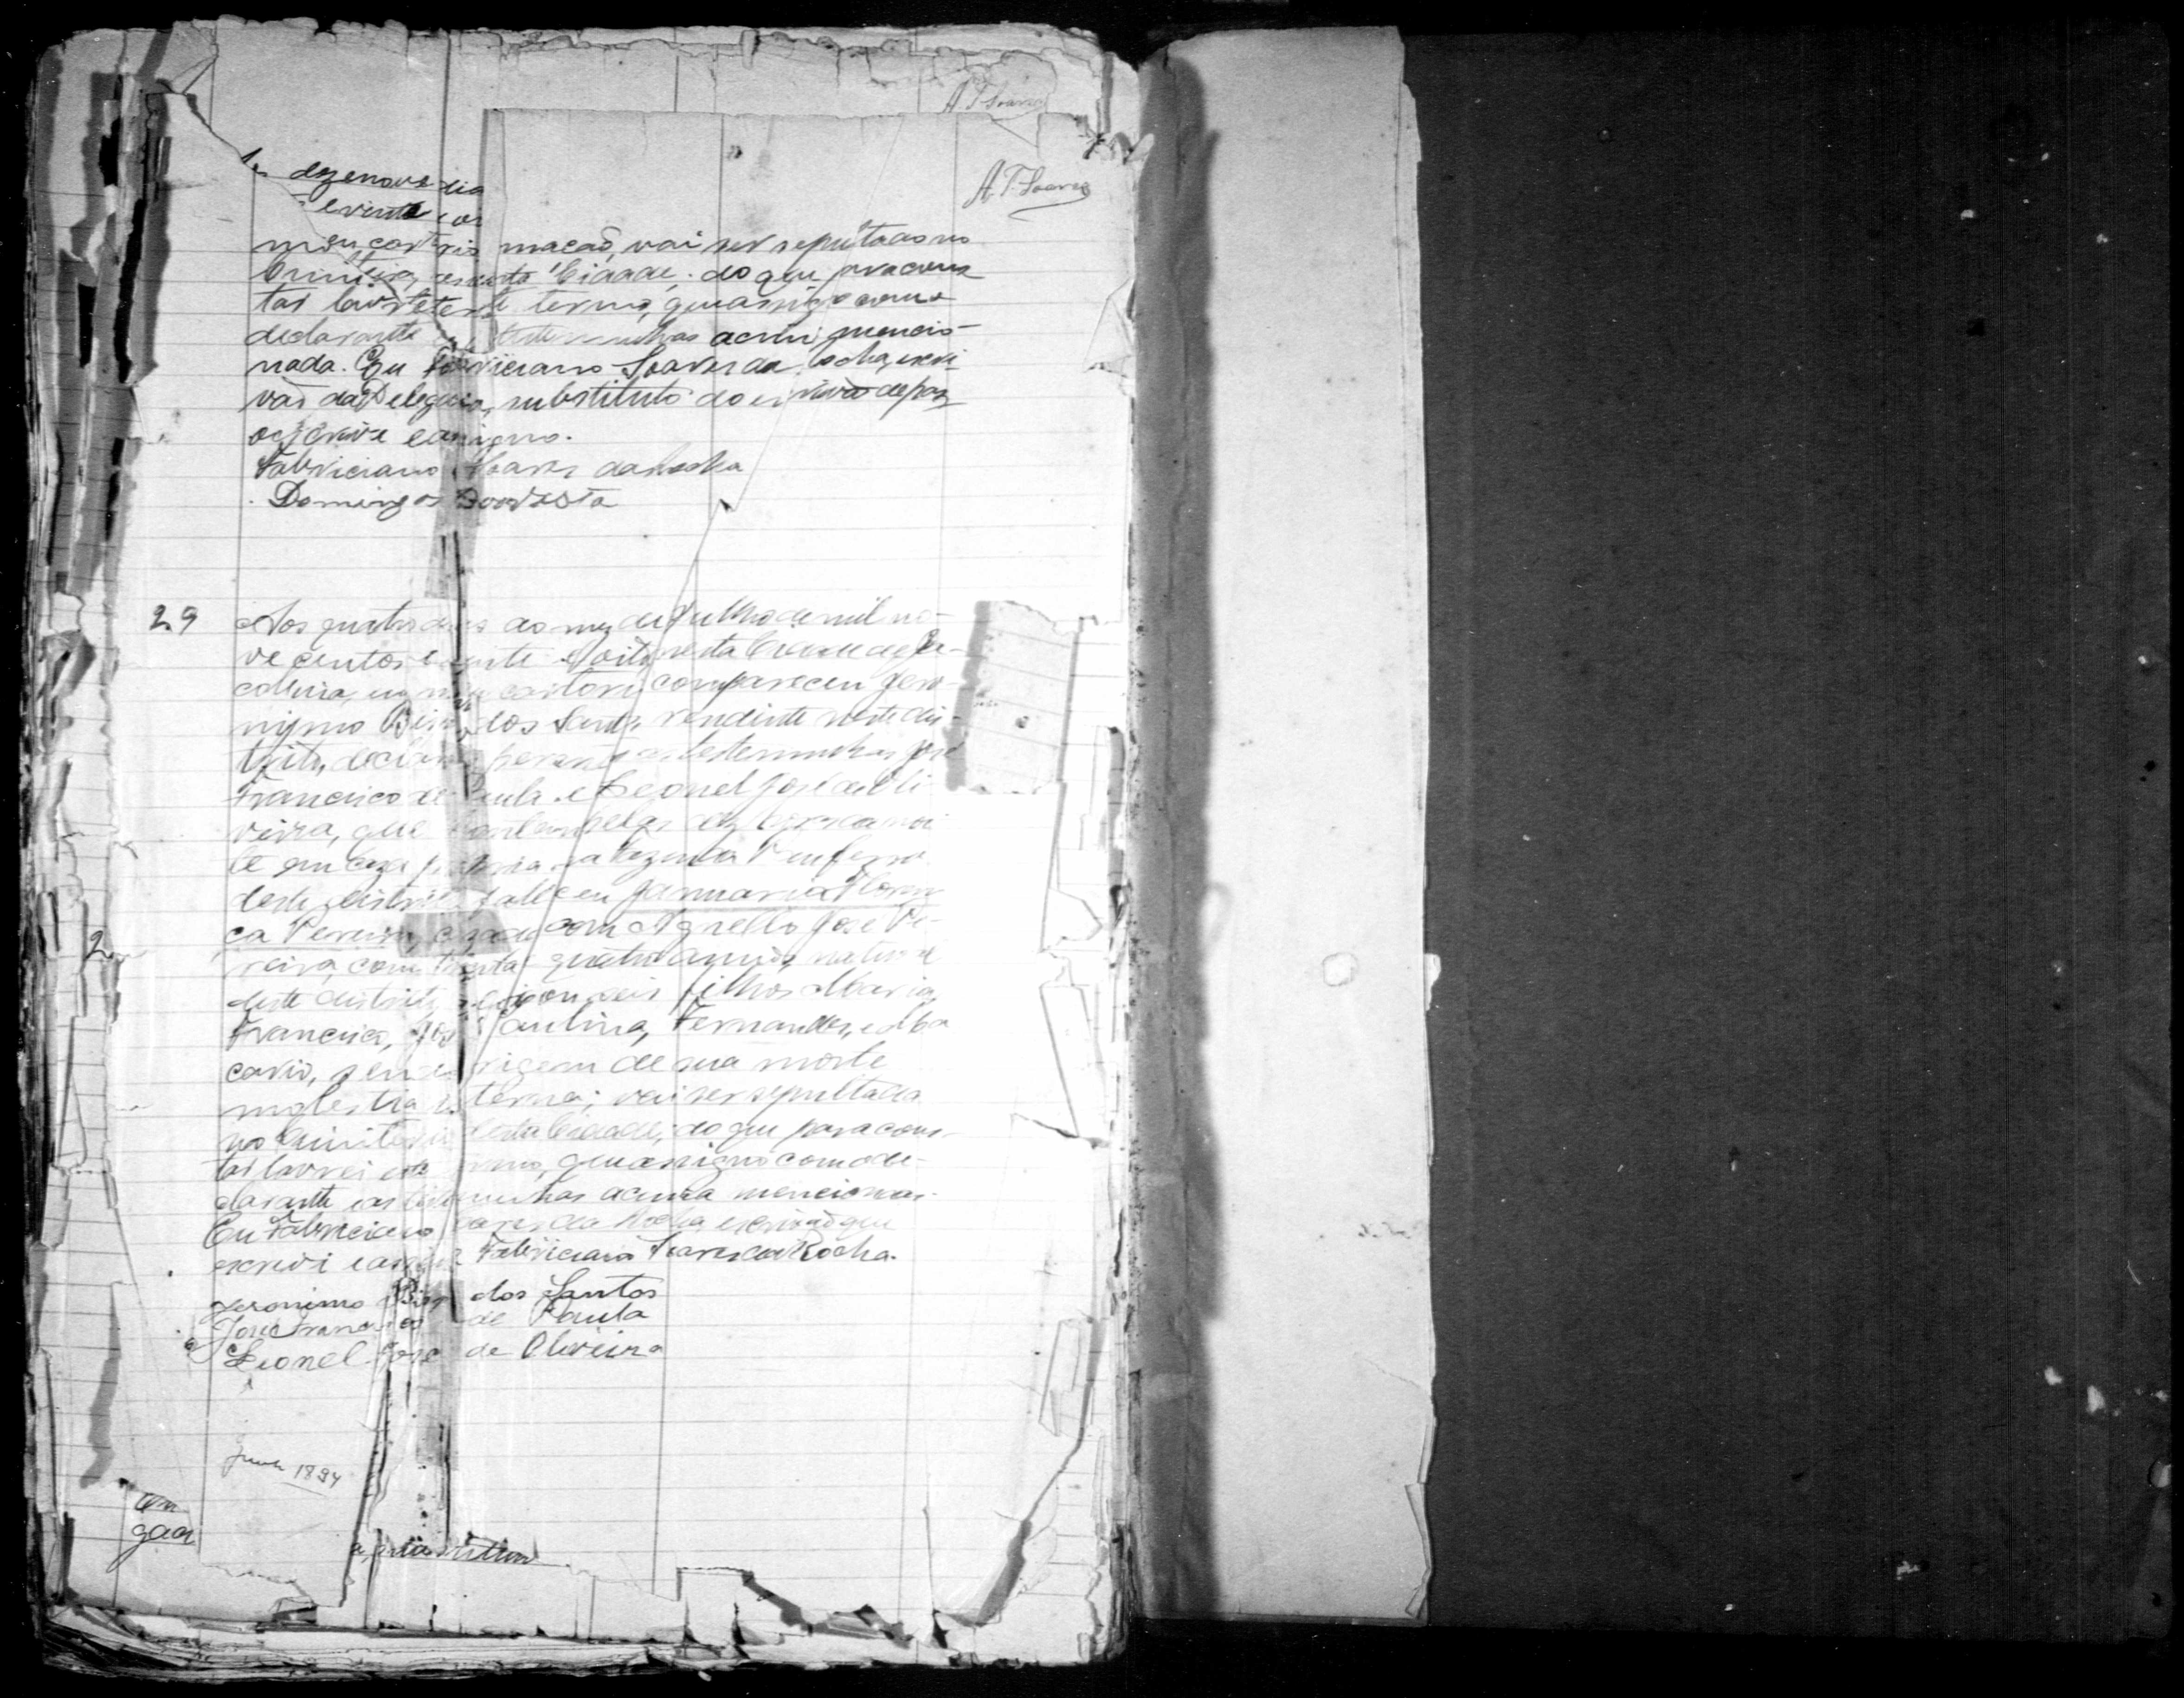 A. T. Soares
A. T. Soares
dezenove dia
e vinte e oi
meu cartorio mação, vai ser sepultado no
Cimiterio desta Cidade; do que para cons
tar lavrei este termo, que assigno com o
declarante e testemunhas acima mencio-
nada. Eu Fabriciano Soares da Rocha, escri
vão da Delegacia, substituto do escrivão de paz
o escrevi e assigno.
Fabriciano Soares da Rocha
Domingos Boovista
29
Aos quatro dias do mez de Julho de mil no-
ve centos e vinte e oito nesta Cidade de
em meu cartorio compareceu Jero-
nymo dos Santos rendente neste dis-
tricto, declarou perante as testemunhas José
Francisco de Paula e Leonel José de Oli-
veira, que hontem pelas dez horas da noi
te em casa propria na fazenda
deste districto falleceu Januaria
ca Pereira, casada com Agnello José Pe-
reira, com trinta quatro annos, natural
2
deste districto, deixou seis filhos Maria,
Francisca, José Paulina, Fernandes, e Ma
cario, sendo origem de sua morte
molestia interna; vai ser sepultada
no Cimiterio desta Cidade, do que para cons-
tar lavrei este termo, que assigno com o de-
clarante e as testemunhas acima mencionas.
Eu Fabriciano Soares da Rocha escrivão que
escrevi e assigno. Fabriciano Soares da Rocha.
Jeronimo dos Santos
José Francisco de Paula
Leonel José de Oliveira
1894